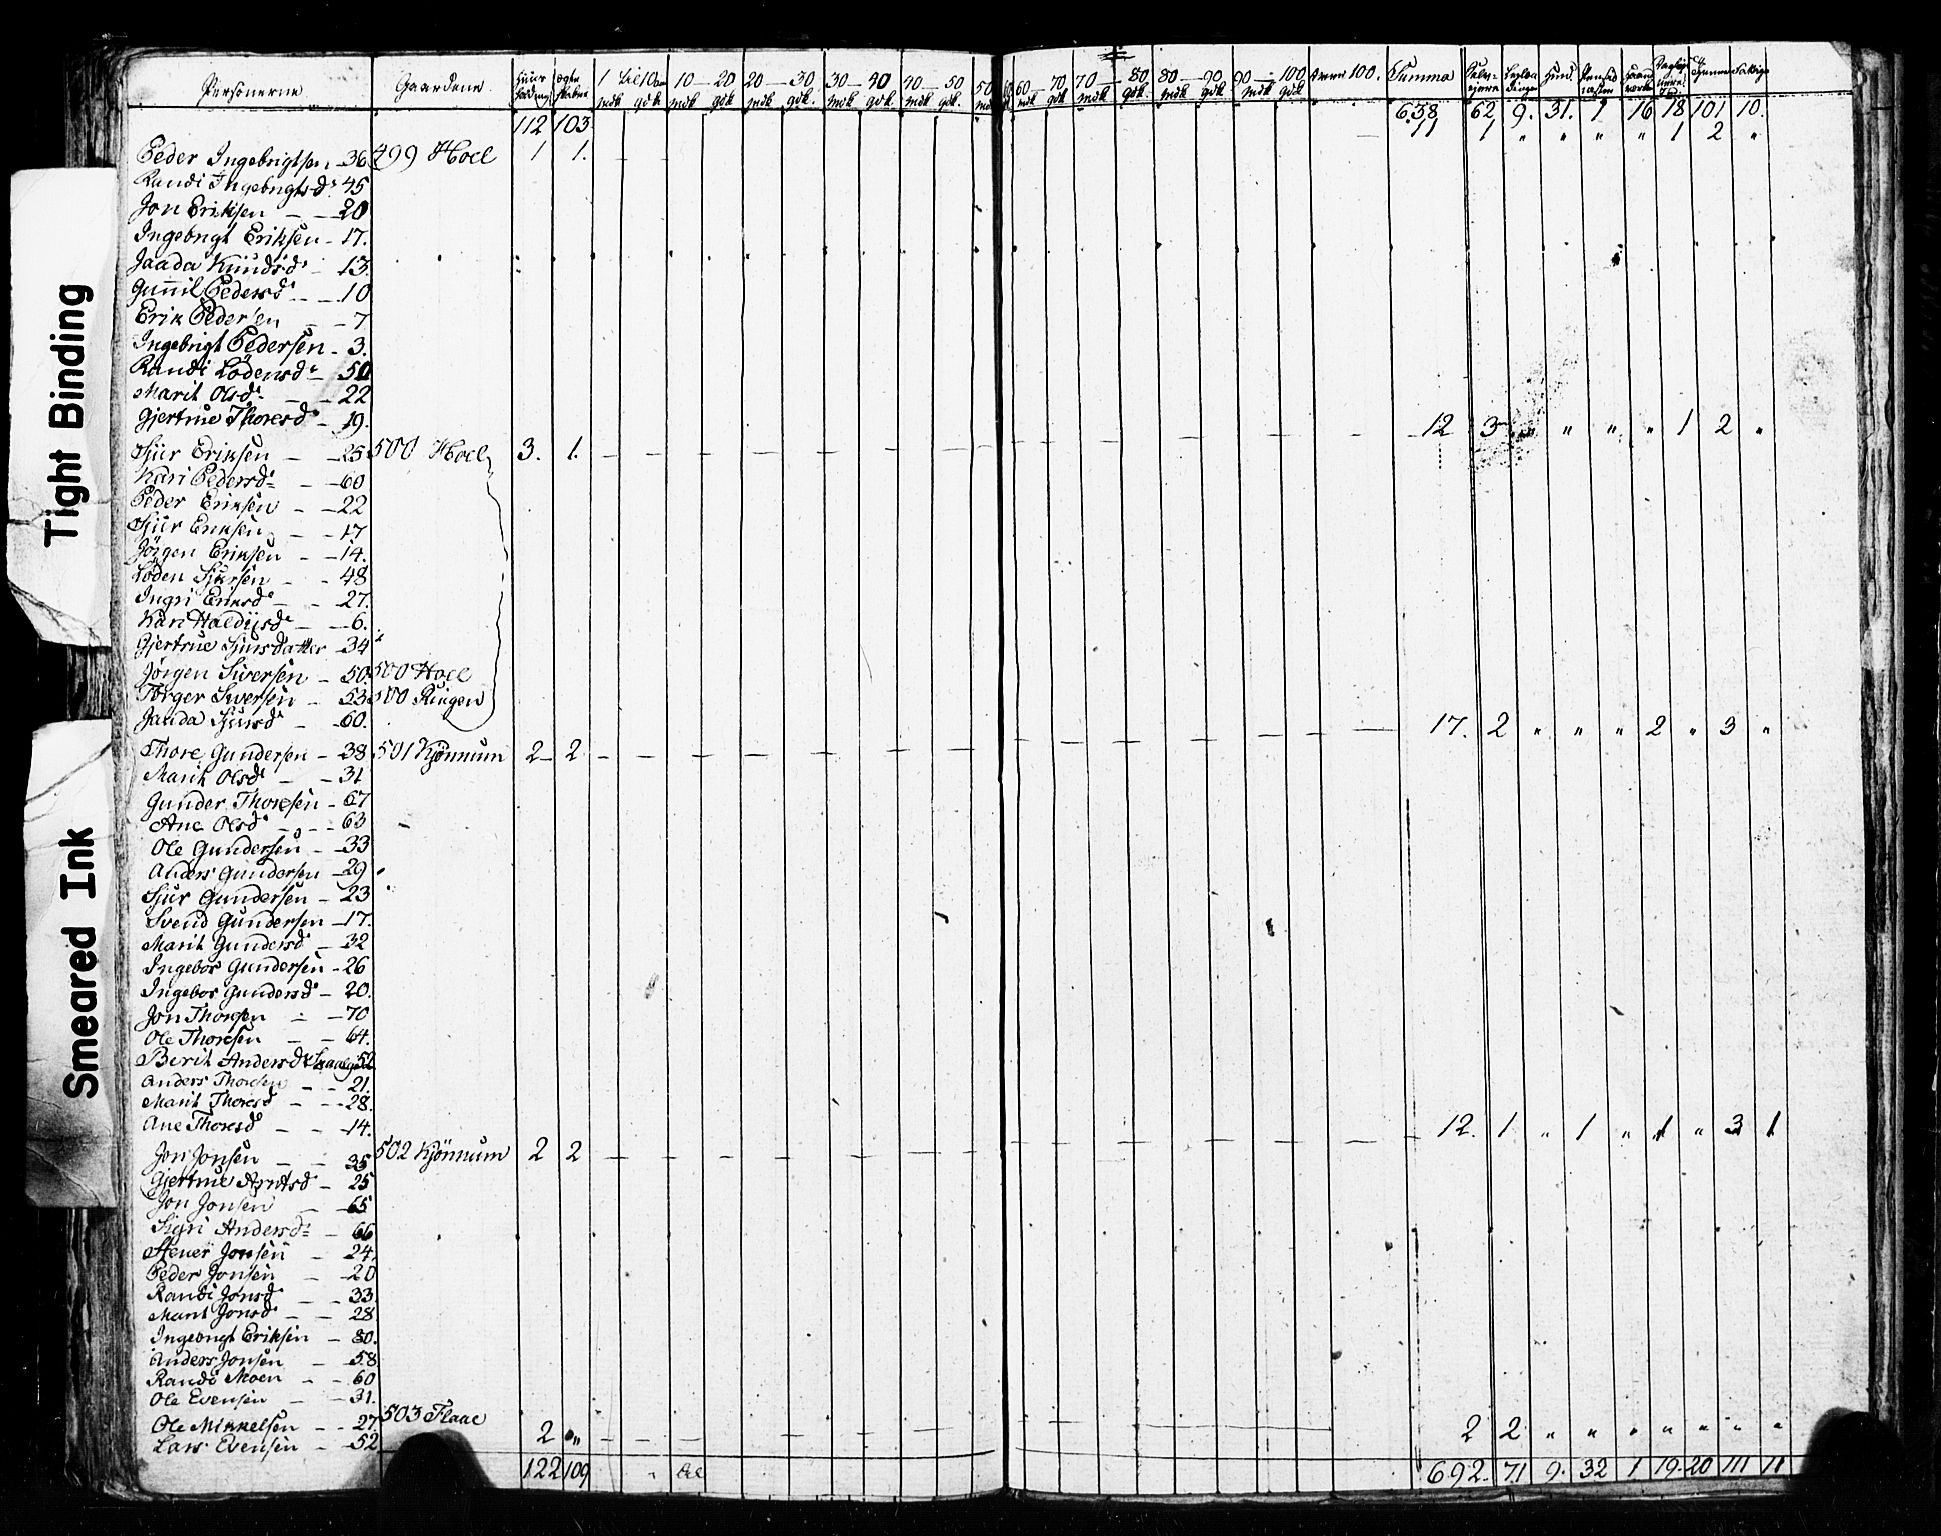 Tight Binding
Smeared Ink
Personerne Gaardene 1 til 10 10 — 20 20 — 30 30 — 40 40 — 50 50 60 60 70 70 — 80 80 — 90 90 — 100 over 100. Summa
mdk qdk mdk qdk mdk qdk. mdk qdk. mdk qdk. mdk mdk qdk mdk qdk. mdk qdk. mdk qdk.
112 103 638 62 9. 31. 1 16 18 101 10.
Peder Ingebrigtsen — 36 499 Hoel 1 1. — — 11 1 " " " " 1 2 "
Randi Ingebrigtsd. 45
Jon Eriksen — — 20
Ingebrigt Eriksen — 17.
Jaada Knudsd. — 13
Gunnil Pedersd. — — 10
Erik Pedersen — — 7
Ingebrigt Pedersen — 3.
Randi Lødensd. — 50
Marit Olsd. — — 22
Gjertrue Thoresd. — 19. 12 3 " " " " 1 2 "
Sjur Eriksen — — 25 500 Hoel 3. 1.
Kari Pedersd. — — 60
Peder Eriksen — — 22
Sjur Eriksen — — 17
Jörgen Eriksen — — 14.
Løden Sjursen — — 48
Ingri Eriksd. — — 27.
Kari — — 6.
Gjertrue Sjursdatter — 34
Jörgen Siversen — 50. 500 Hoel
Torger Siversen — 53 500 Ringen
Janda Sjursd. — 60. 17. 2 " " " 2 " 3 "
Thore Gundersen — 38 501 Kjønnum 2 — 2
Marit Olsd. — — 31
Gunder Thoresen — 67
Ane Olsd. — — — 63
Ole Gundersen — — 33
Anders Gundersen — 29
Sjur Gundersen — 23
Svend Gundersen — 17.
Marit Gundersd. — 32
Ingebor Gundersen — 26
Ingebor Gundersd. — 20.
Jon Thoresen — — 70
Ole Thoresen — — 64.
Berit Andersd. 52
Anders Thoresen — — 21.
Marit Thoresd. — — 28.
Ane Thoresd. — — 14. 12. 1 " 1 " 1 " 3 1
Jon Jonsen — — 35 502 Kjønnum 2 2
Gjertrue Arntsd. — 25
Jon Jonsen — 65
Sigri Andersd. — 66
Stener Jonsen — 24.
Peder Jonsen — 20
Randi Jonsd. — — 33
Marit Jonsd. — — 28
Ingebrigt Eriksen — 80.
Anders Jonsen — 58
Randi Moen — — 60
Ole Evensen — — 31.
Ole Mikkelsen — — 27 503 Flaae
Lars Evensen — 52 2 " 2 2 " " " " " " "
122 109 692. 71 9. 32 1 19. 20 111 11